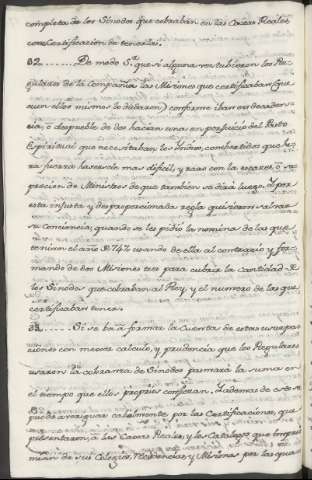 completa de los Sinodos que cobraban en las Caxas Reales
con Certificacion de tenerlas.
32........De modo S.r que si alguna vez tubieron los Re-
gulares de la Compañia las Misiones que certificaban (que
aun ellos mismos lo dudaron) conforme iban en decaden-
cia, o despueble de dos hacian una en perjuicio del Pasto
Espiritual que necesitaban los Indios, combertidos que
fuera hacerselo mas dificil, y raro con la escases, o su-
presion de Ministros de que tambien se dirá luego. Y por
esta injusta y desproporcionada regla quisieron salvar
su conciencia, quando se les pidió la nomina de las que
tenian el año de 1747 usando de ella al contrario y for-
mando de dos Misiones tres para cubrir la cantidad de
los Sinodos que cobraban al Rey y el numero de las que
certificaban tener.
33......Si se ha de formar la Cuenta de estas usurpa-
ciones con mejor calculo, y prudencia que los Regulares
usaron la cobranza de Sinodos sumará la suma en
el tiempo que ellos propios confiesan, y ademas de esto se
puede averiguar cabalmente por las Certificaciones, que
presentaron a las Caxas Reales, y los Catalogos que impri-
mian de sus Colegios, Residencias y Misiones por las que